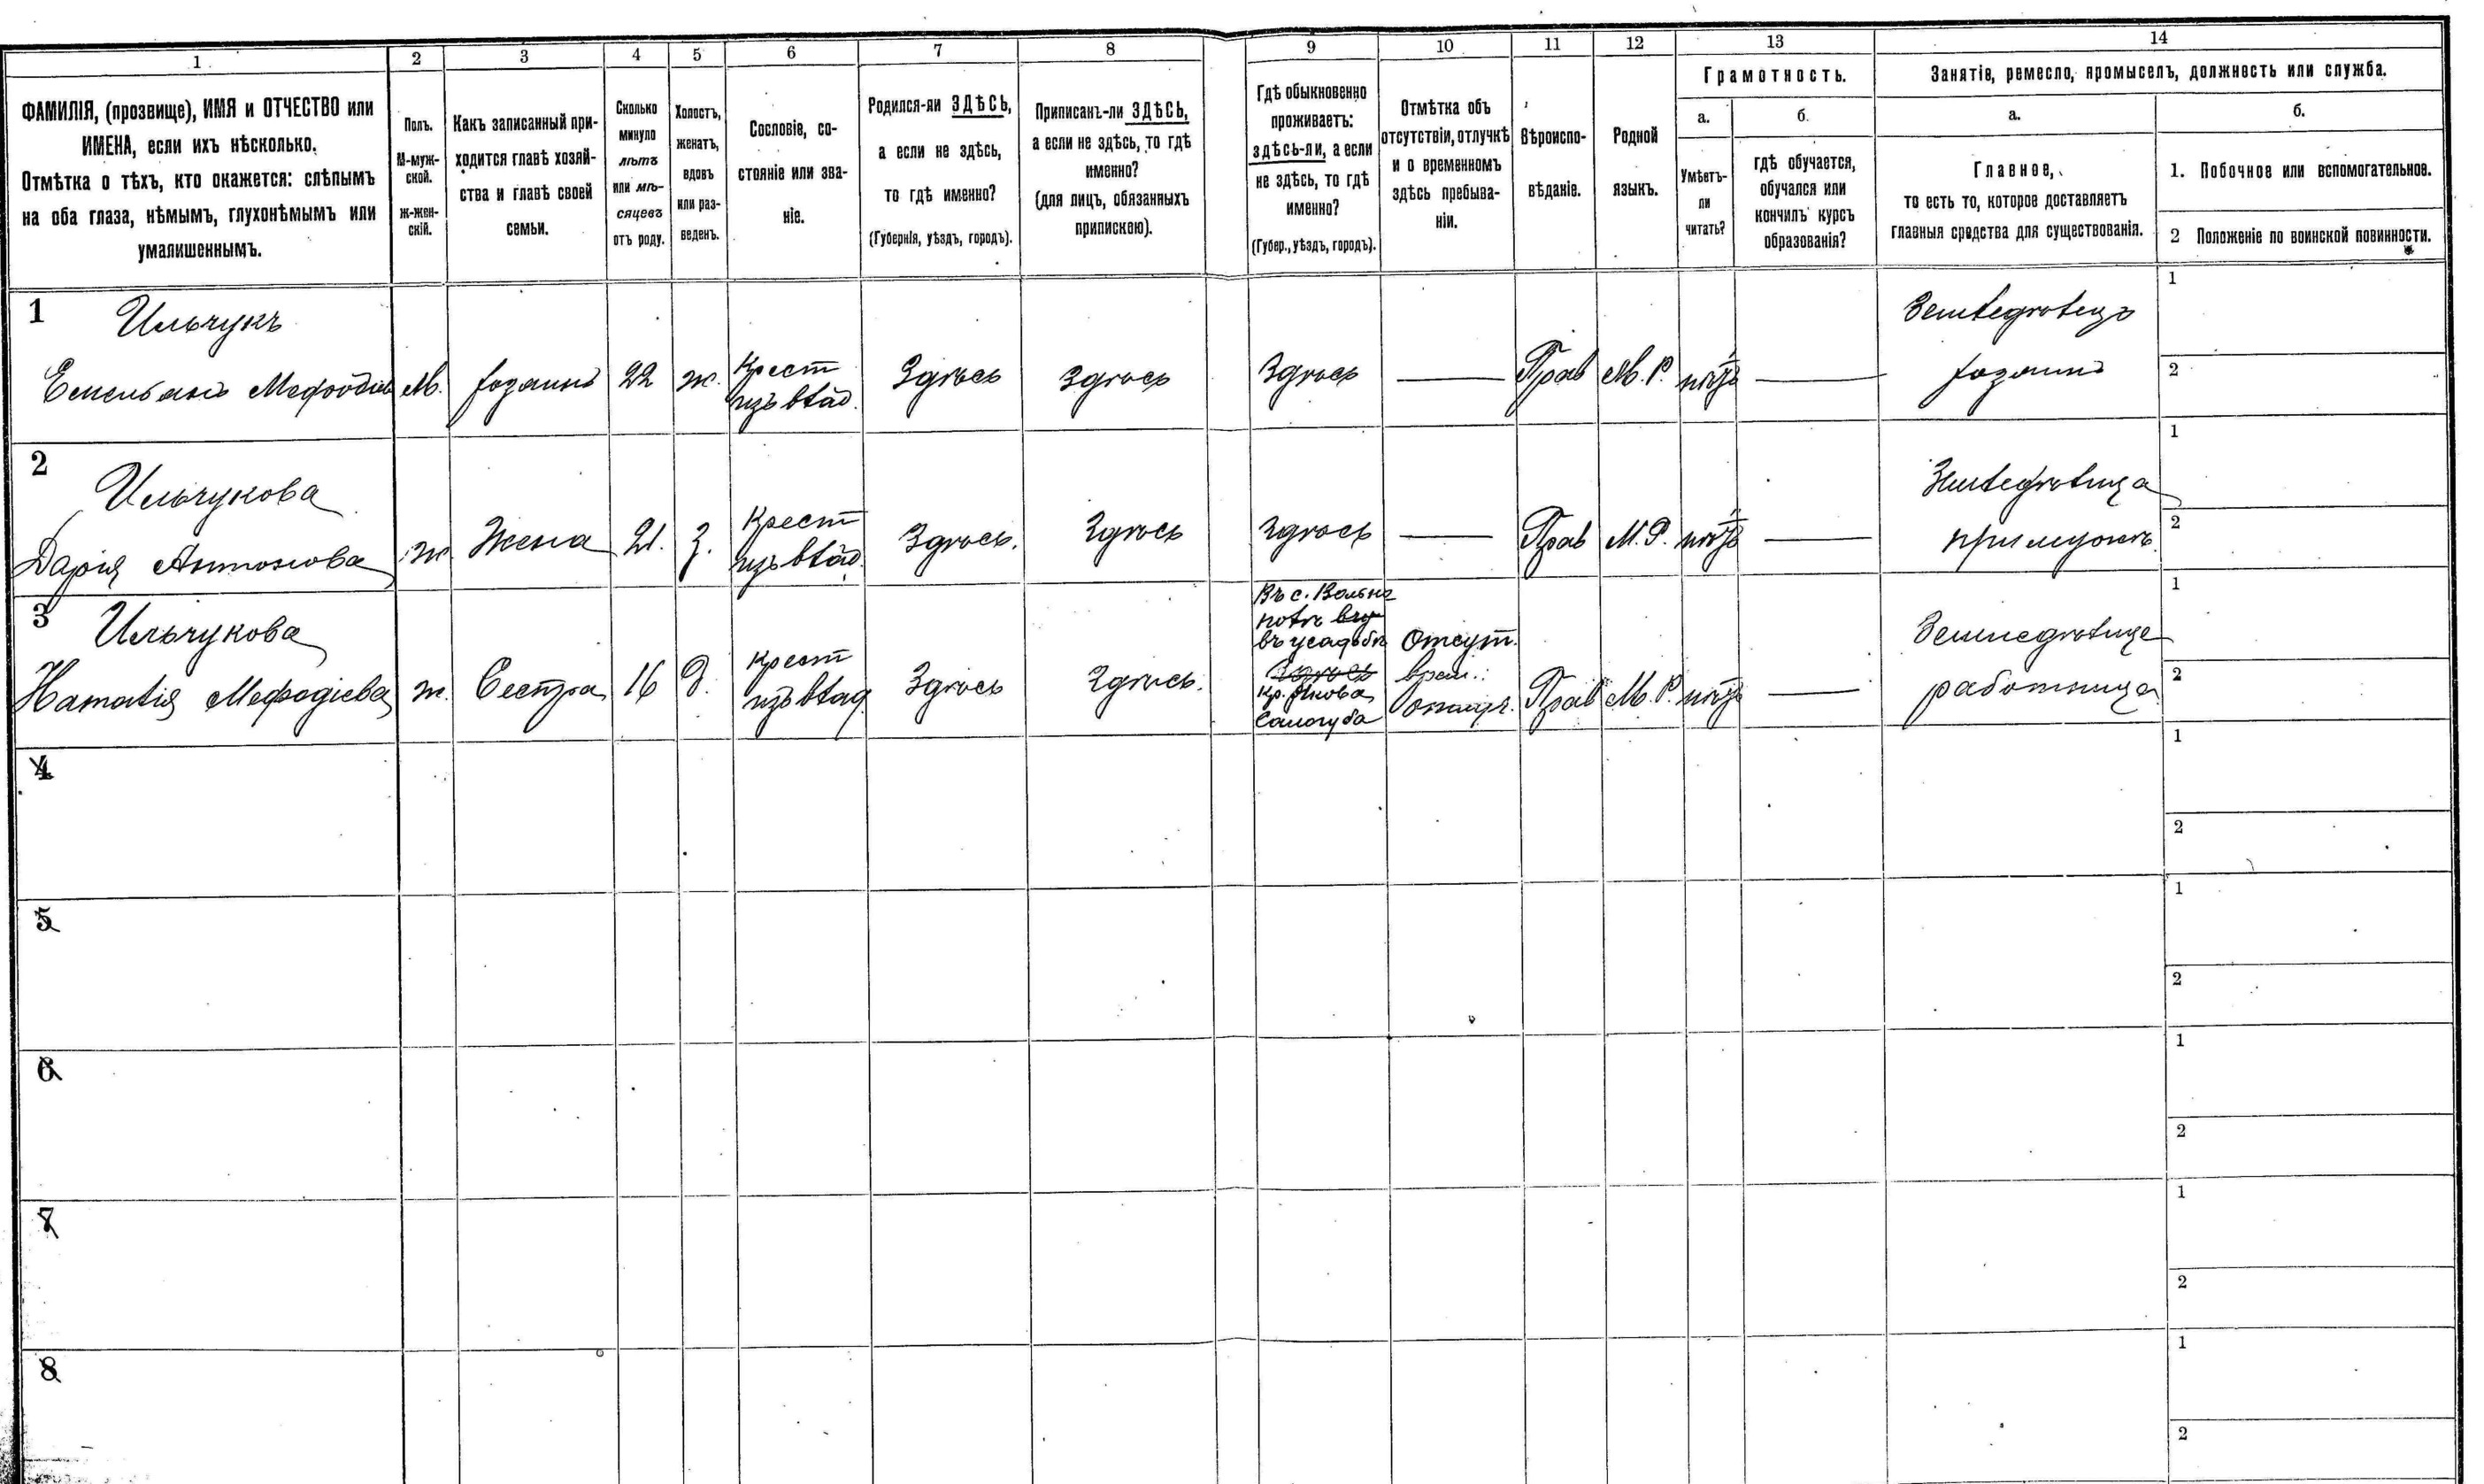 1 2 3 4 5 6 7 8 9 10 11 12 13 14
ФАМИЛІЯ, (прозвище), ИМЯ и ОТЧЕСТВО или
ИМЕНА, если ихъ нѣсколько.
Отмѣтка о тѣхъ, кто окажется: слѣпымъ
на оба глаза, нѣмымъ, глухонѣмымъ или
умалишеннымъ.
Полъ.
М-муж-
ской.
ж-жен-
скій.
Какъ записанный при-
ходится главѣ хозяй-
ства и главѣ своей
семьи.
Сколько
минуло
лѣтъ
или мѣ-
сяцевъ
отъ роду.
Холостъ,
женатъ,
вдовъ
или раз-
веденъ.
Сословіе, со-
стояніе или зва-
ніе.
Родился-ли ЗДѢСЬ,
а если не здѣсь,
то гдѣ именно?
(Губернія, уѣздъ, городъ).
Приписанъ-ли ЗДѢСЬ,
а если не здѣсь, то гдѣ
именно?
(для лицъ, обязанныхъ
припискою).
Гдѣ обыкновенно
проживаетъ:
здѣсь-ли, а если
не здѣсь, то гдѣ
именно?
(Губер., уѣздъ, городъ).
Отмѣтка объ
отсутствіи, отлучкѣ
и о временномъ
здѣсь пребыва-
ніи.
Вѣроиспо-
вѣданіе.
Родной
языкъ.
Грамотность.
а.
Умѣетъ-
ли
читать?
б.
гдѣ обучается,
обучался или
кончилъ курсъ
образованія?
Занятіе, ремесло, промыселъ, должность или служба.
а.
Главное,
то есть то, которое доставляетъ
главныя средства для существованія.
б.
1. Побочное или вспомогательное.
2 Положеніе по воинской повинности.
1 Ильчукъ
Емельянъ Мефодіев М. хозяинъ 22 ж. Крест
изъ влад. Здѣсь Здѣсь Здѣсь — Прав М. Р. нѣтъ — Земледѣлецъ
хозяинъ 1
2
2 Ильчукова
Дарія Антонова ж Жена 21. з. Крест
изъ влад. Здѣсь. Здѣсь Здѣсь — Прав М. Р. нѣтъ — Земледѣлица
при мужѣ. 1
2
3 Ильчукова
Наталія Мефодіева ж. Сестра 16 д. крест
изъ влад. Здѣсь Здѣсь. Въ с. Вольно
въ усадьбѣ
кр. Якова
Сологуба
Отсут.
врем.
Прав М. Р. нѣтъ — Земледѣлице
работница 1
2
4 1
2
5 1
2
6 1
2
7 1
2
8 1
2